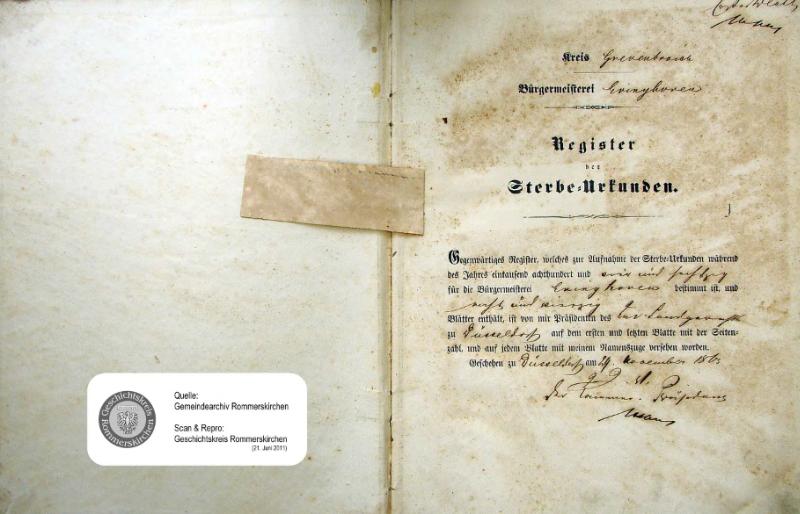 Kreis Grevenbroich
Bürgermeisterei Evinghoven
Register
der
Sterbe-Urkunden.
Gegenwärtiges Register, welches zur Aufnahme der Sterbe-Urkunden während
des Jahres eintausend achthundert und vier und sechszig
für die Bürgermeisterei Evinghoven bestimmt ist, und
acht und vierzig
Blätter enthält, ist von mir Präsidenten des
zu Düsseldorf auf dem ersten und letzten Blatte mit der Seiten-
zahl, und auf jedem Blatte mit meinem Namenszuge versehen worden.
Geschehen zu Düsseldorf am November 1863
Der Kammer-Präsident
Quelle:
Gemeindearchiv Rommerskirchen
Scan & Repro:
Geschichtskreis Rommerskirchen
(21. Juni 2011)
Geschichtskreis
Rommerskirchen